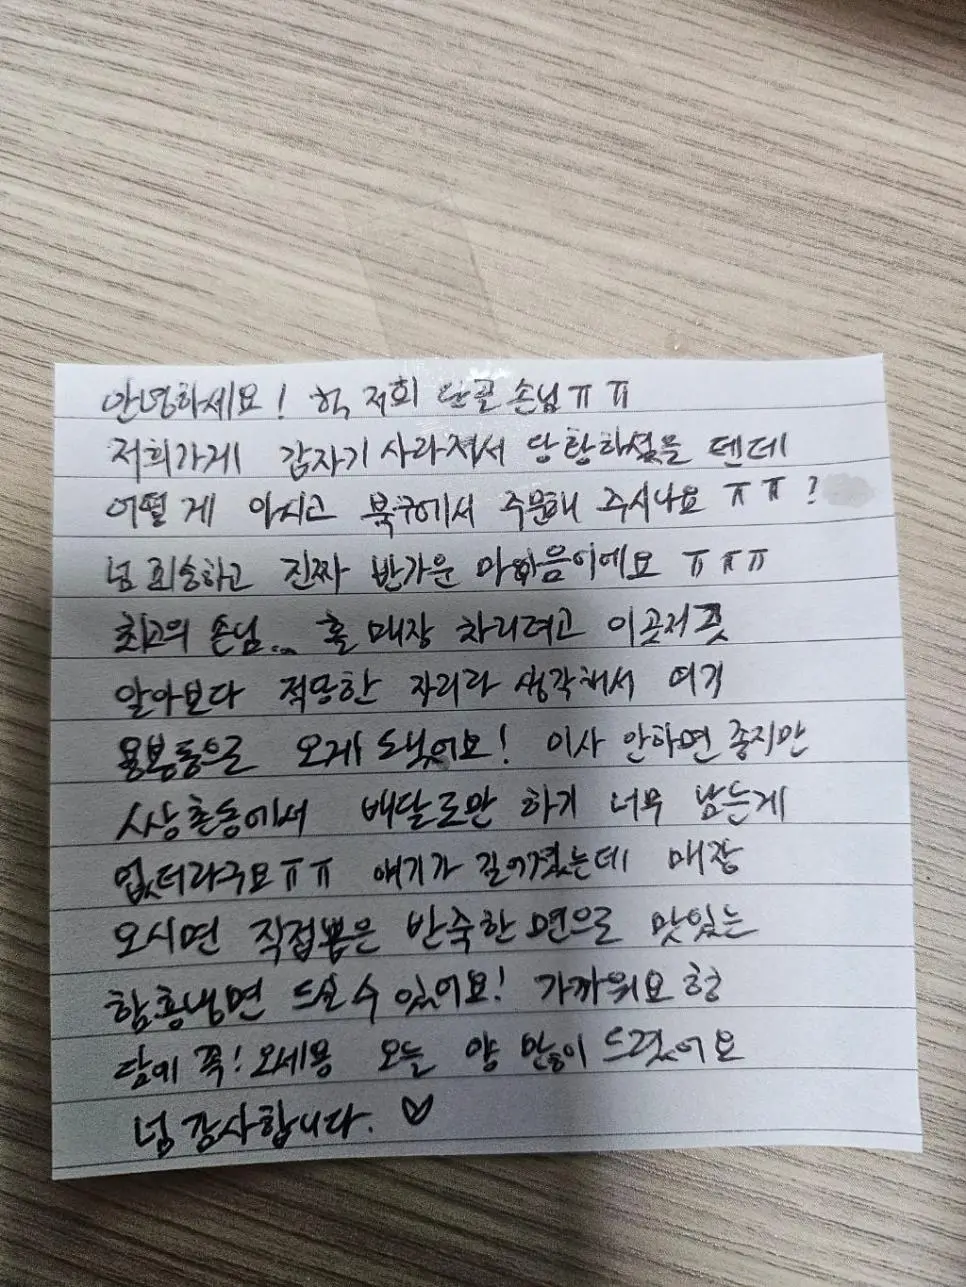 안녕하세요! 헉, 저희 단골 손님ㅠㅠ
저희가게 갑자기 사라져서 당황하셨을 텐데
어떻게 아시고 북구에서 주문해 주시나요 ㅠㅠ?
넘 죄송하고 진짜 반가운 마음이에요 ㅠㅠㅠ
최고의 손님... 홀 매장 차리려고 이곳저곳
알아보다 적당한 자리라 생각해서 여기
용봉동으로 오게 됐어요! 이사 안하면 좋지만
쌍촌동에서 배달로만 하기 너무 남는게
없더라구요ㅠㅠ 얘기가 길어졌는데 매장
오시면 직접뽑은 반죽한 면으로 맛있는
함흥냉면 드실 수 있어요! 가까워요 헝
담에 꼭! 오세용 오늘 양 많이 드렸어요
넘 감사합니다. ♡